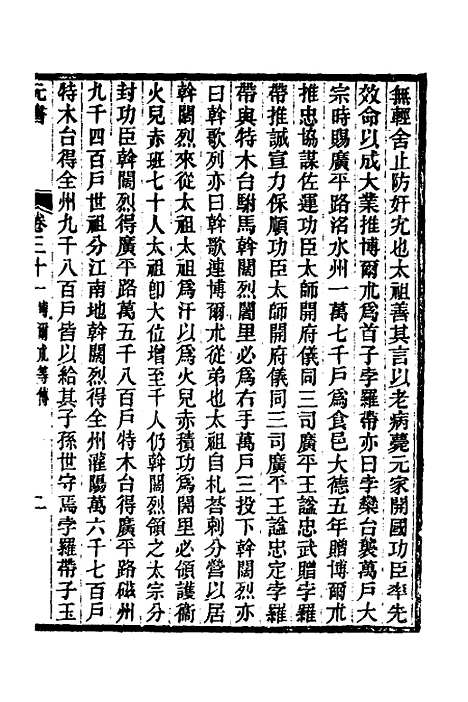 無輕舍止防奸宄也太祖善其言以老病薨元家開國功臣率先
效命以成大業推博爾朮爲首子孛羅帶亦曰孛欒台襲萬戶大
宗時賜廣平路洺水州一萬七千戶爲食邑大德五年贈博爾朮
推忠協謀佐運功臣太師開府儀同三司廣平王謚忠武贈孛羅
帶推誠宣力保順功臣太師開府儀同三司廣平王謚忠定孛羅
帶與特木台駙馬斡闊烈闍里必爲右手萬戶三投下斡闊烈亦
曰斡歌列亦曰斡歌連博爾朮從弟也太祖自札荅剌分營以居
斡闊烈來從太祖太祖爲汗以爲火兒赤積功爲闍里必領護衛
火兒赤班七十人太祖卽大位增至千人仍斡闊烈領之太宗分
封功臣斡闊烈得廣平路萬五千八百戶特木台得廣平路磁州
九千四百戶世祖分江南地斡闊烈得全州灌陽萬六千七百戶
特木台得全州九千八百戶皆以給其子孫世守焉孛羅帶子玉
元書 卷三十一 博爾朮等傳 二